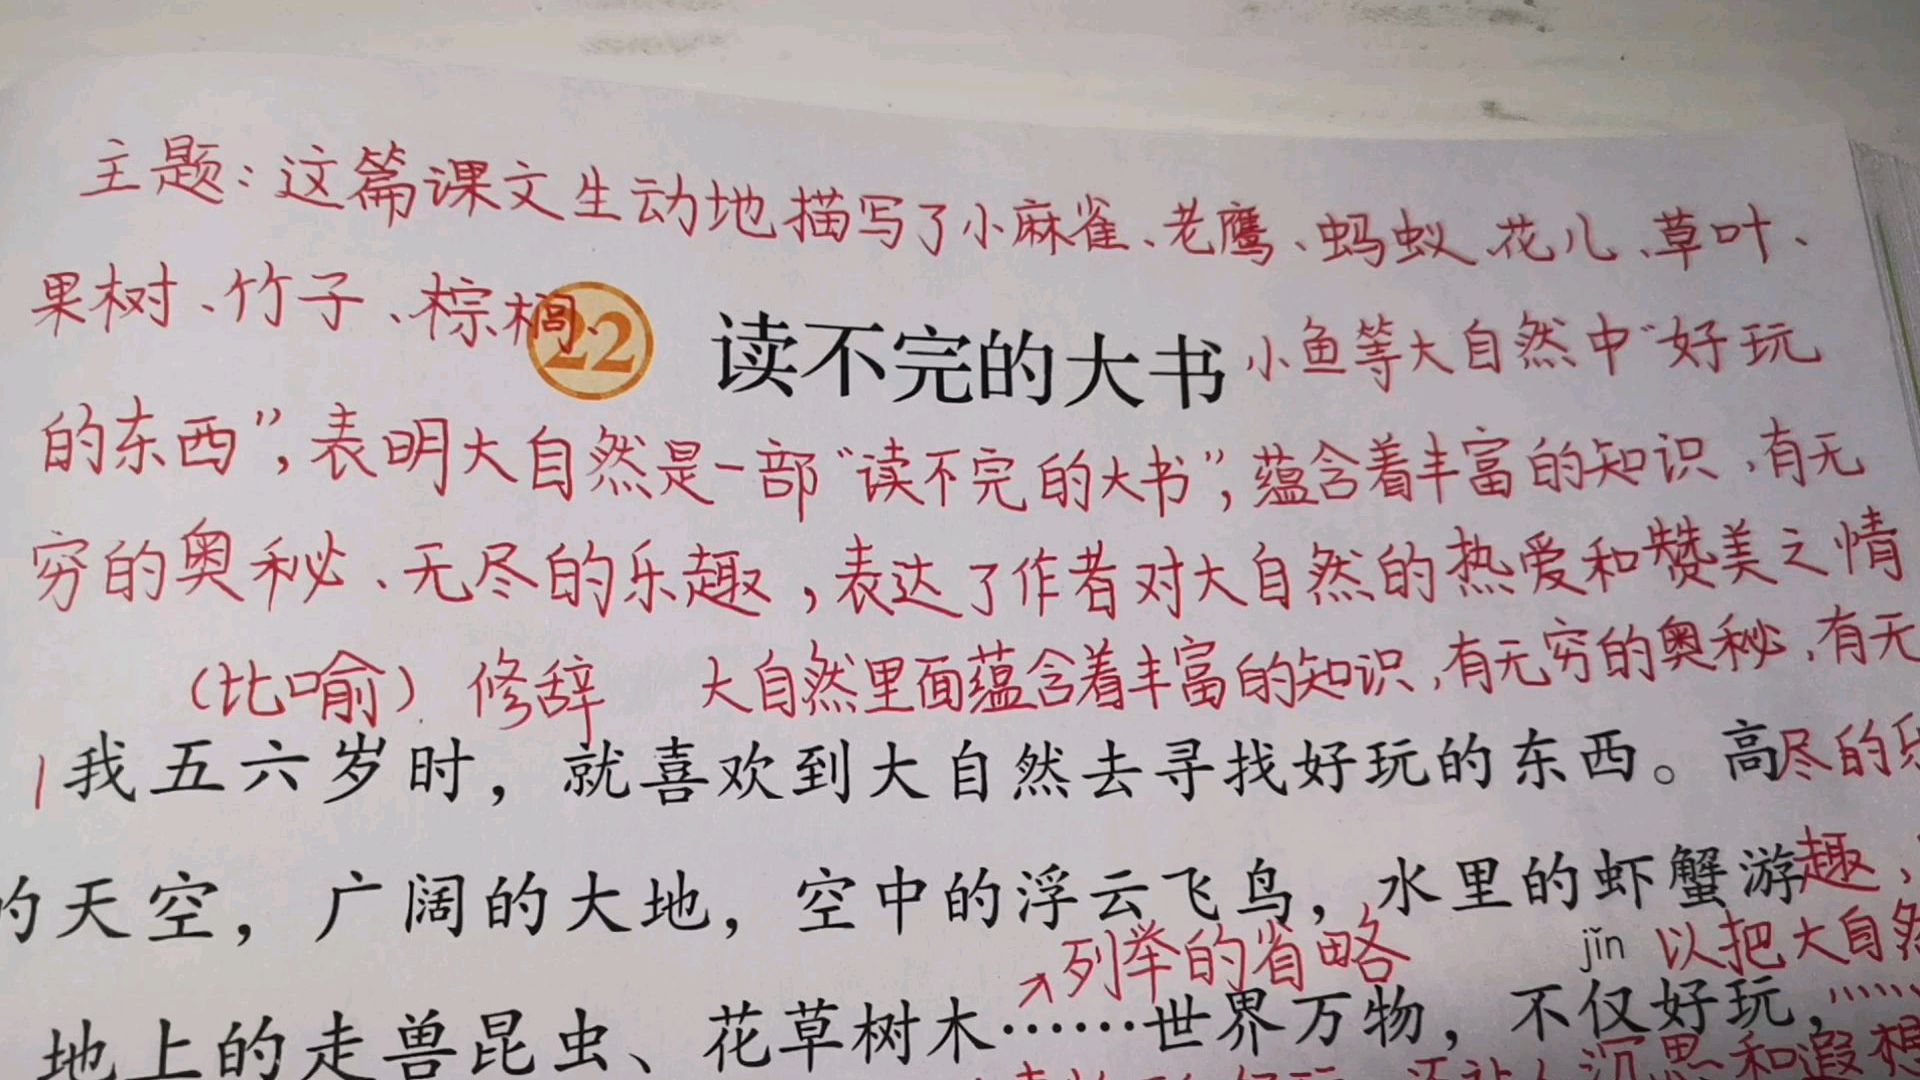 主题:这篇课文生动地描写了小麻雀、老鹰、蚂蚁、花儿、草叶、
果树、竹子、棕榈、
22 读不完的大书
小鱼等大自然中“好玩
的东西”,表明大自然是一部“读不完的大书”,蕴含着丰富的知识,有无
穷的奥秘、无尽的乐趣,表达了作者对大自然的热爱和赞美之情
(比喻) 修辞 大自然里面蕴含着丰富的知识,有无穷的奥秘,有无
1我五六岁时,就喜欢到大自然去寻找好玩的东西。高
尽的乐
的天空,广阔的大地,空中的浮云飞鸟,水里的虾蟹游
趣,
列举的省略
jǐn
以把大自然
地上的走兽昆虫、花草树木……世界万物,不仅好玩,
还让人沉思和遐想